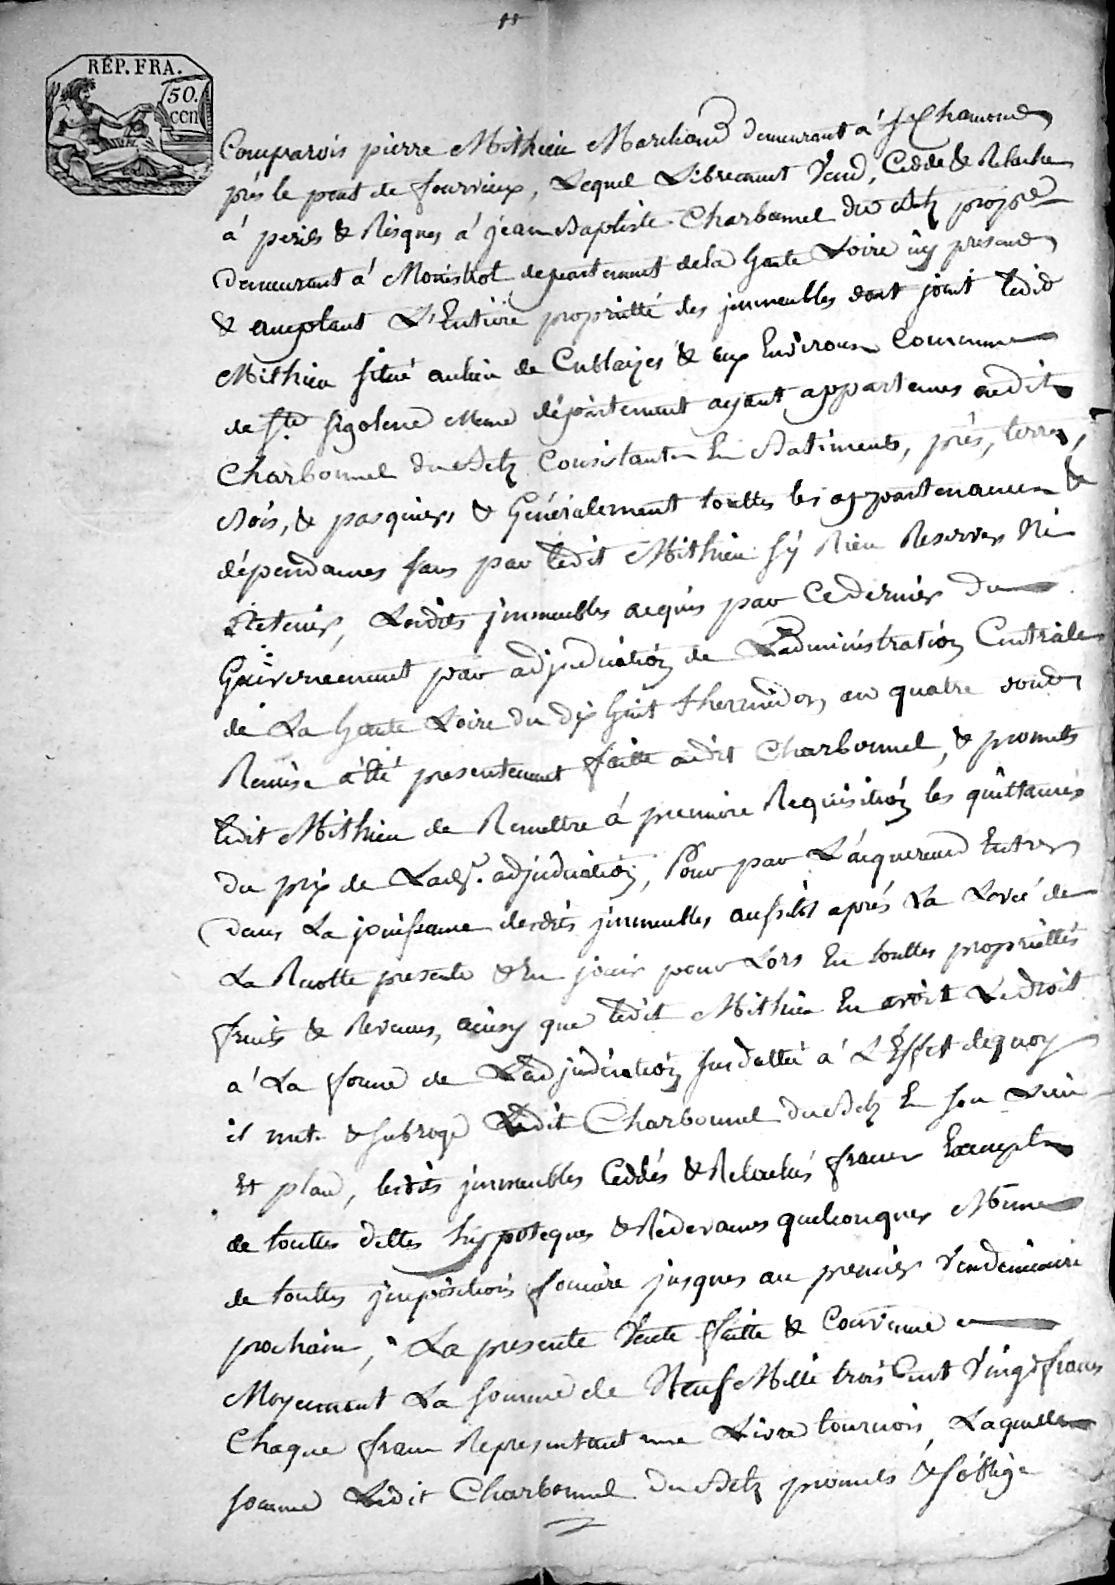 RÉP. FRA.
50.
cen
Comparois pierre Mithieu Marchand demeurant á St Chamond
prés le pont de fourvieux, Lequel Librement Vend, Cedde & Relache
á perils & Risques á jean Baptiste Charbonnel du Betz propre
demeurant á Monistrol departement de la haute Loire icy present
& acceptant L'Entiére propriétté des jmmeubles dont jouit ledit
Mithieu situé au lieu de Cublaizes & aux Environs Commune
de Ste sigolene Meme département ayant appartenus audit
Charbonnel du Betz Consistants En Batiments, prés, terres,
Bois, & pasquiers & Généralement touttes les appartenances &
dépendances sans par ledit Mithieu s'y Rien Reserver Ni
Retenir, Lesdits jmmeubles acquis par Ce dernier du
Gouvernement par adjudication de L'administration Centrale
de La haute Loire du dix huit thermidor an quatre dont
Remise a été presentement faitte audit Charbonnel, & promets
ledit Mithieu de Remettre á premiere Requisition les quittances
du prix de Ladte. adjudication, Pour par L'acquereur Entrer
dans La jouissance desdits jmmeubles aussitot aprés La Levée de
La Recolte presente & En jouir pour Lors En touttes propriéttés
fruits & Revenus, ainsy que ledit Mithieu En avoit Le droit
a La forme de L'adjudication susdattée á L'Effet de quoy
il met & subroge Ledit Charbonnel du Betz En son Lieu
Et place, lesdits jmmeubles Ceddés & Relachés francs Exempts
de touttes dettes hypoteques & Redevances quelconques Même
de touttes jmpositions fonciere jusques au premier Vendemiaire
prochain, La presente Vente faitte & Convenue
Moyennant La somme de Neuf Mille trois Cent Vingt francs
Chaque franc Representant une Livre tournois, Laquelle
somme Ledit Charbonnel du Betz promets & s'oblige